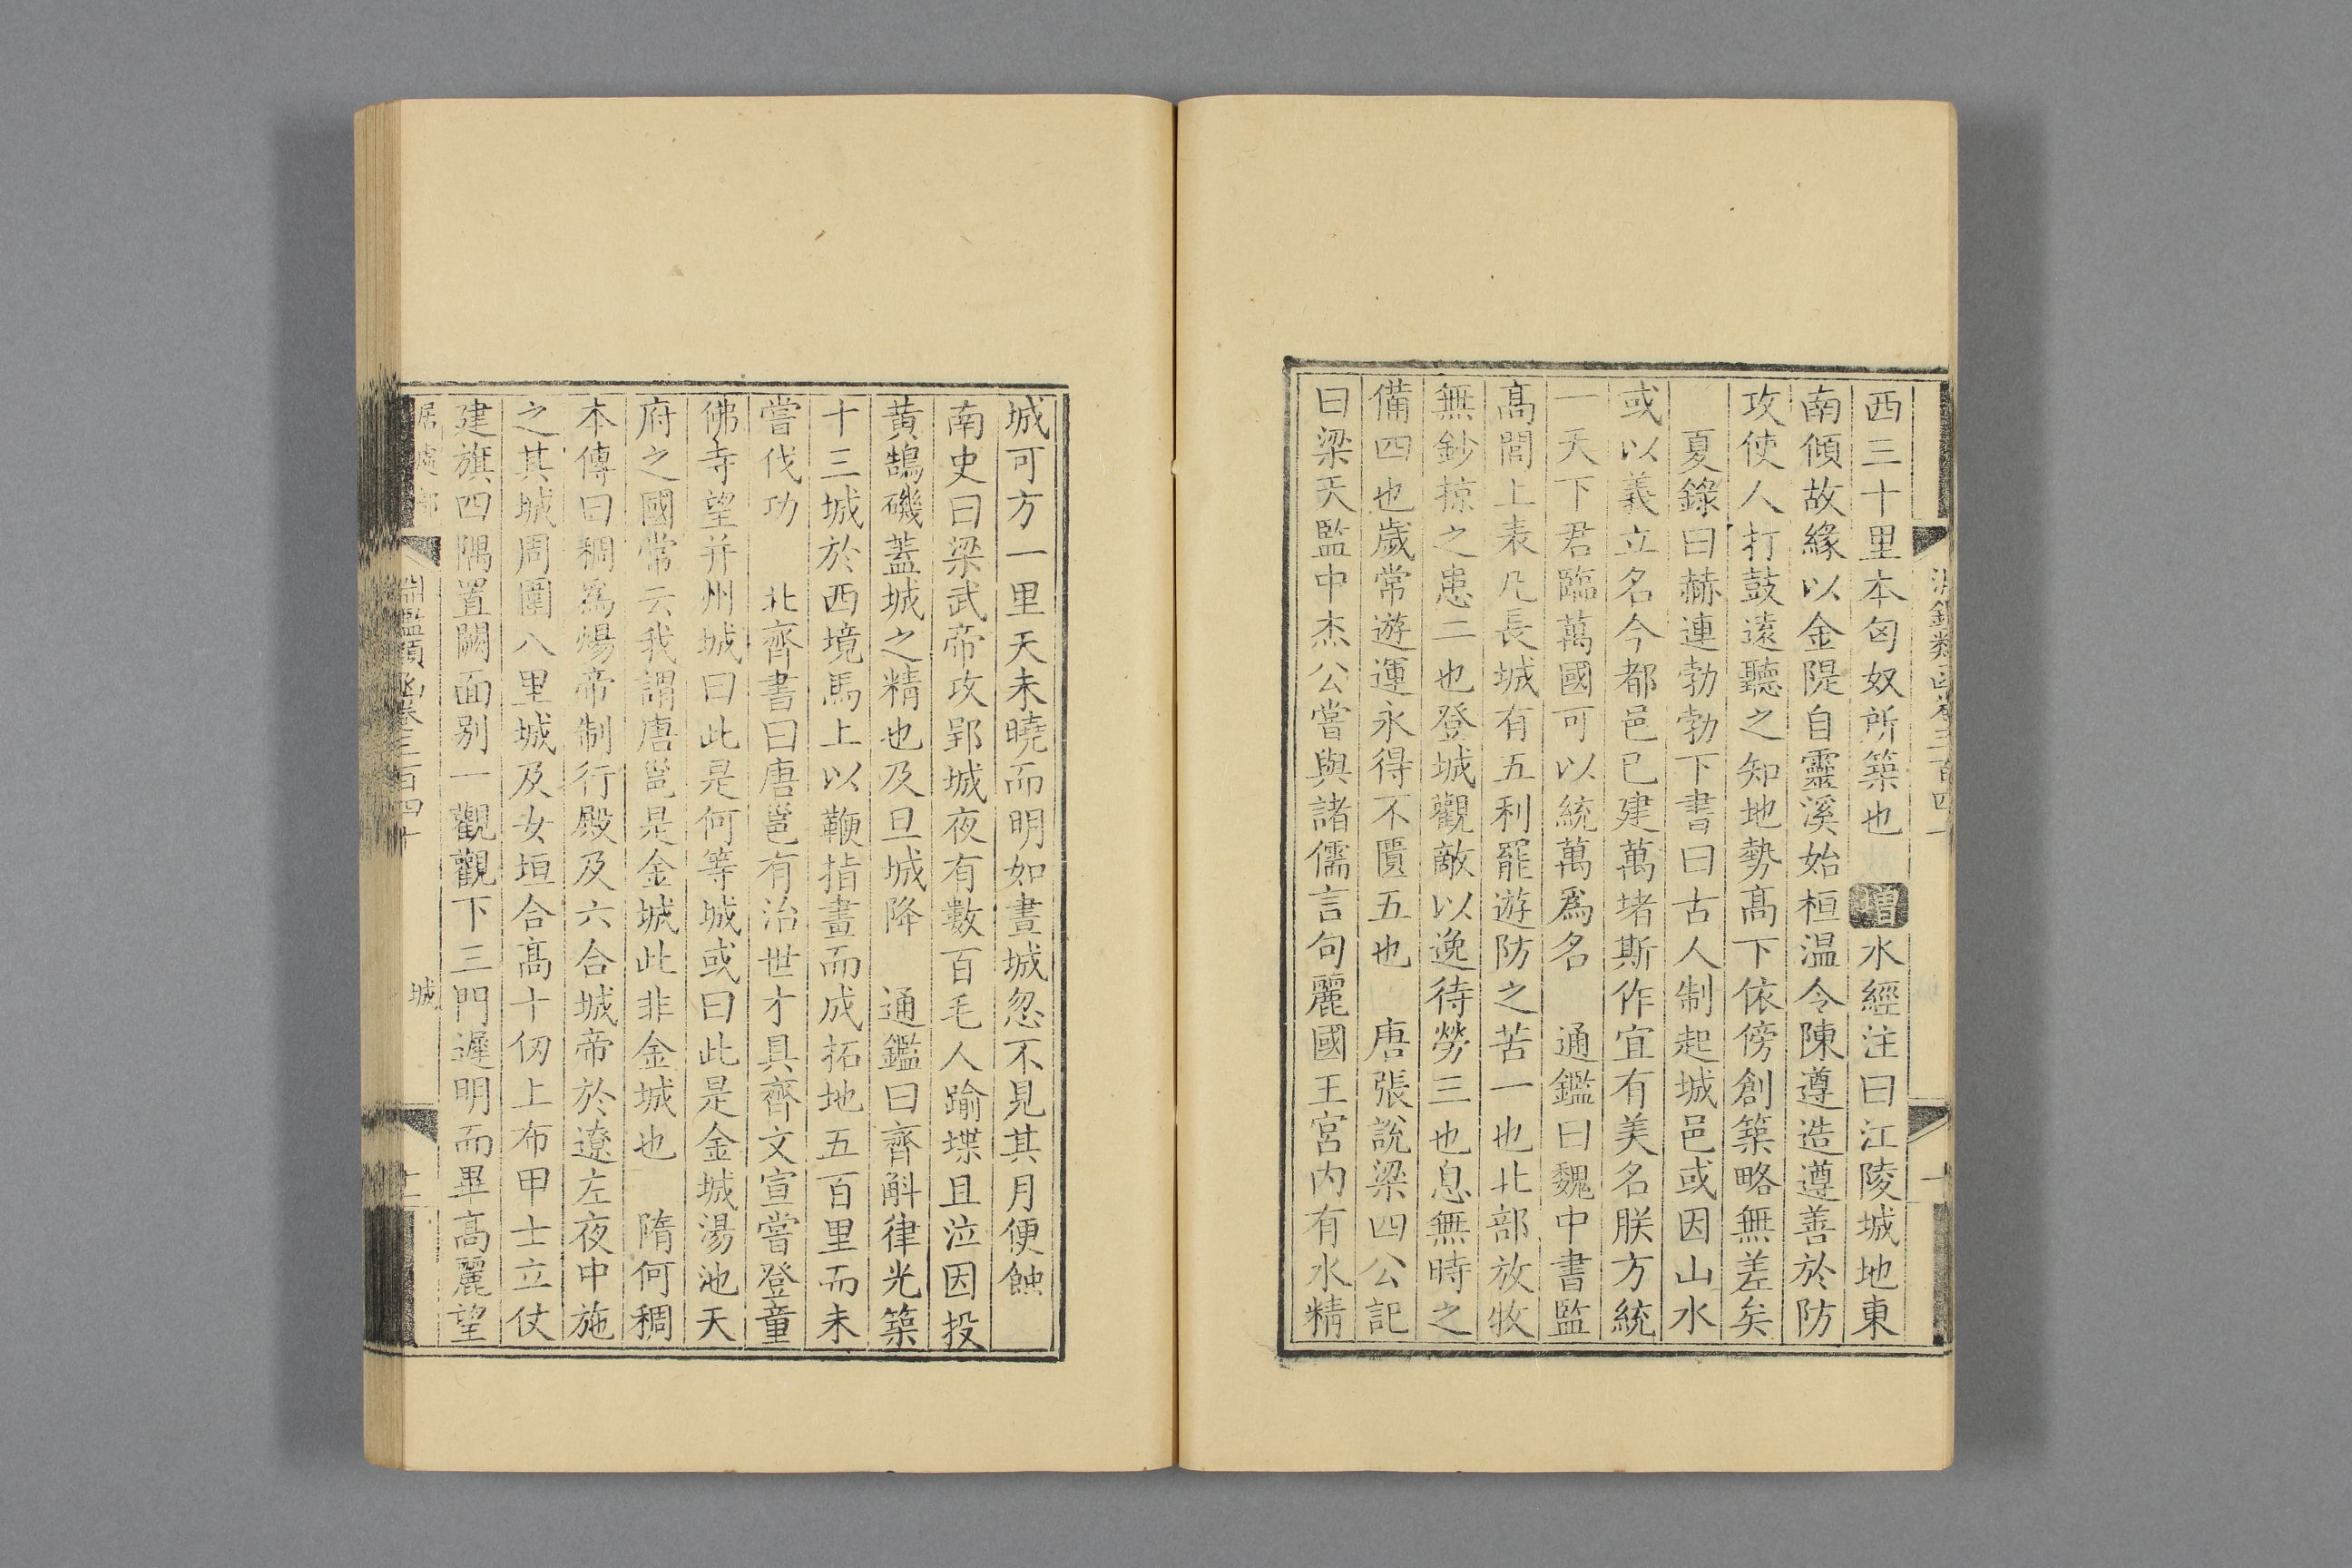 西三十里本匈奴所築也　增水經注曰江陵城地東
南傾故緣以金隄自靈溪始桓温令陳遵造遵善於防
攻使人打鼓遠聽之知地勢髙下依傍創築略無差矣
夏錄曰赫連勃勃下書曰古人制起城邑或因山水
或以義立名今都邑已建萬堵斯作宜有美名朕方統
一天下君臨萬國可以統萬爲名　通鑑曰魏中書監
髙閭上表凡長城有五利罷遊防之苦一也北部放牧
無鈔掠之患二也登城觀敵以逸待勞三也息無時之
備四也歲常遊運永得不匱五也　唐張說梁四公記
曰梁天監中杰公嘗與諸儒言句麗國王宮内有水精
城可方一里天未曉而明如晝城忽不見其月便蝕
南史曰梁武帝攻郢城夜有數百毛人踰堞且泣因投
黄鵠磯蓋城之精也及旦城降　通鑑曰齊斛律光築
十三城於西境馬上以鞭指畫而成拓地五百里而未
嘗伐功　北齊書曰唐邕有治世才具齊文宣嘗登童
佛寺望并州城曰此是何等城或曰此是金城湯池天
府之國常云我謂唐邕是金城此非金城也　隋何稠
本傳曰稠爲煬帝制行殿及六合城帝於遼左夜中施
之其城周圍八里城及女垣合髙十仞上布甲士立仗
建旗四隅置闕面別一觀觀下三門遲明而畢髙麗望
居處部　淵鑑類函卷三百四十　城